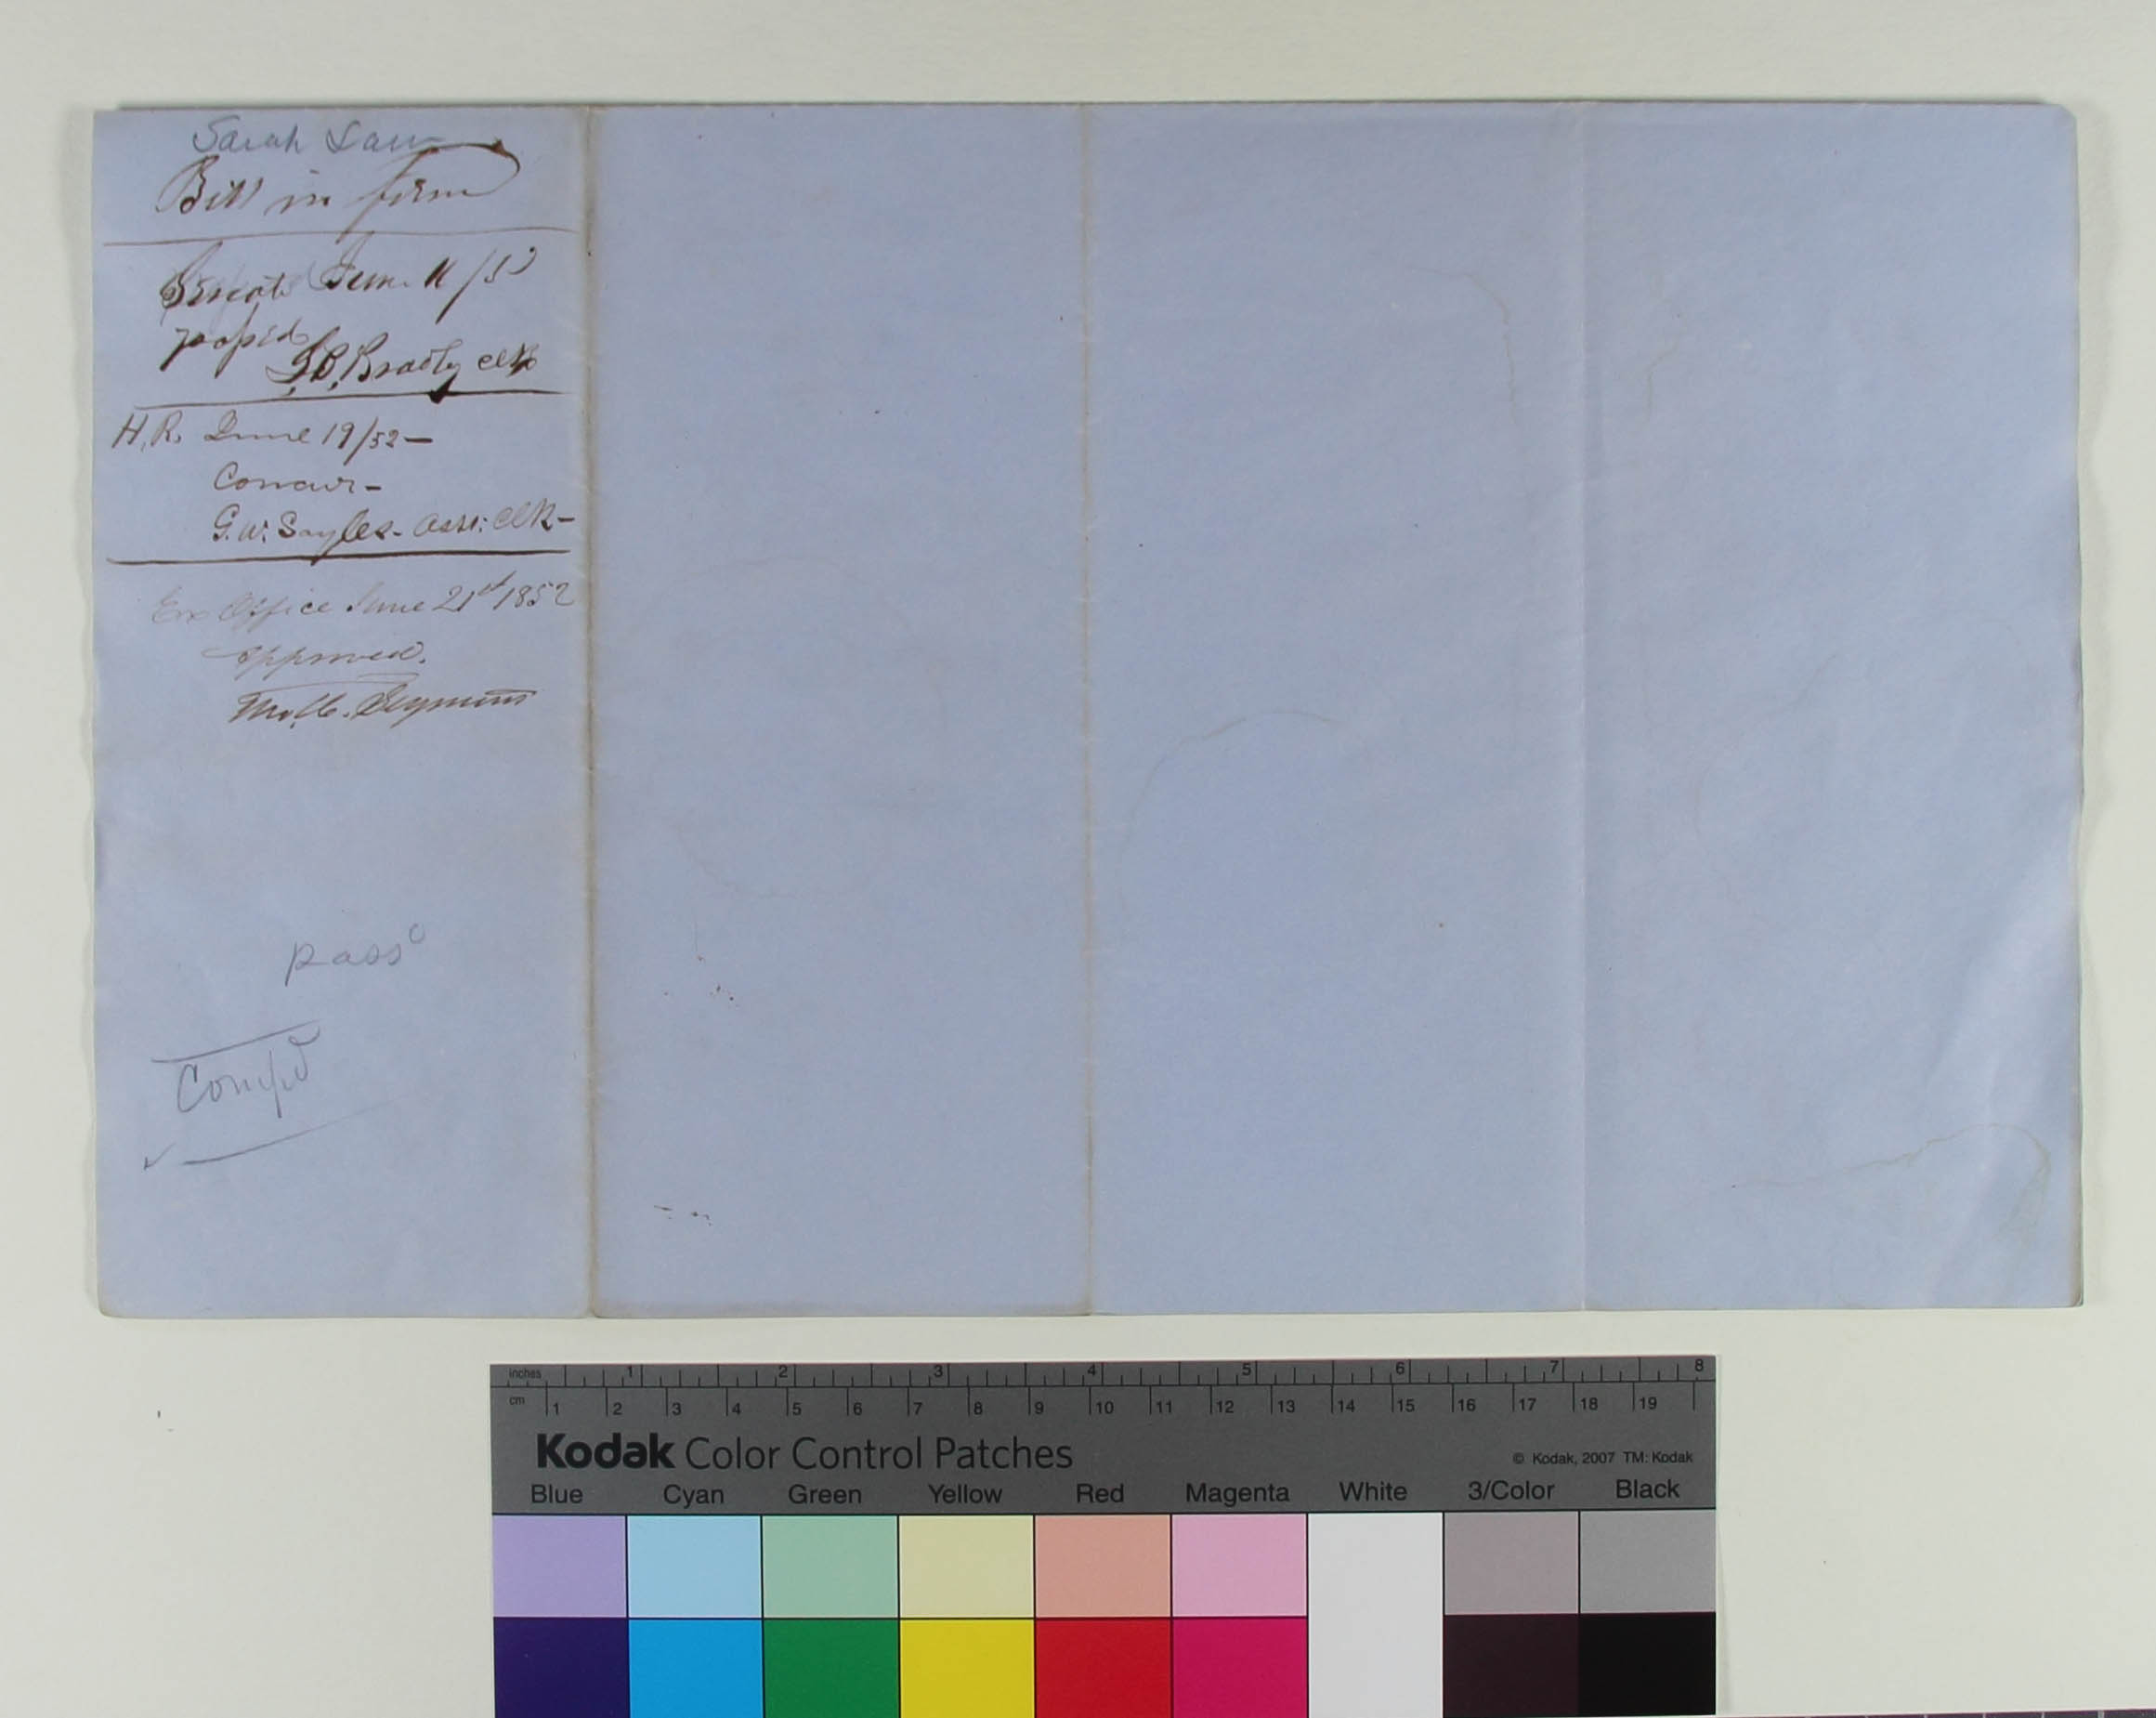 Sarah Law
Bill in form
Senate June 11/52
passed
L.B. Bradley clk
H.R. June 19/52—
Concur-
G.W. Sayles- Asst: Clk-
Ex Office June 21st 1852
Approved.
Tho. H. Seymour
passd
Compd
inches 1 2 3 4 5 6 7 8
cm 1 2 3 4 5 6 7 8 9 10 11 12 13 14 15 16 17 18 19
Kodak Color Control Patches
© Kodak, 2007 TM: Kodak
Blue Cyan Green Yellow Red Magenta White 3/Color Black